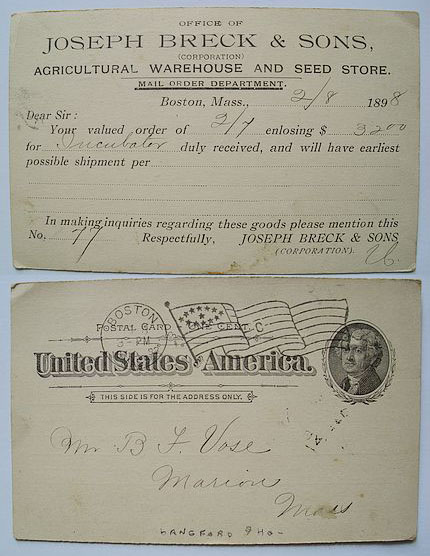 OFFICE OF
JOSEPH BRECK & SONS,
(CORPORATION)
AGRICULTURAL WAREHOUSE AND SEED STORE.
MAIL ORDER DEPARTMENT.
Boston, Mass., 2/8 1898
Dear Sir:
Your valued order of 2/7 enlosing $ 32 00
for Incubator duly received, and will have earliest
possible shipment per
In making inquiries regarding these goods please mention this
No. 77 Respectfully, JOSEPH BRECK & SONS
(CORPORATION).
BOSTON
PM
POSTAL CARD ONE CENT.
C
United States America.
THIS SIDE IS FOR THE ADDRESS ONLY.
Mr B F Vose
Marion
Mass
LANGFORD 940-